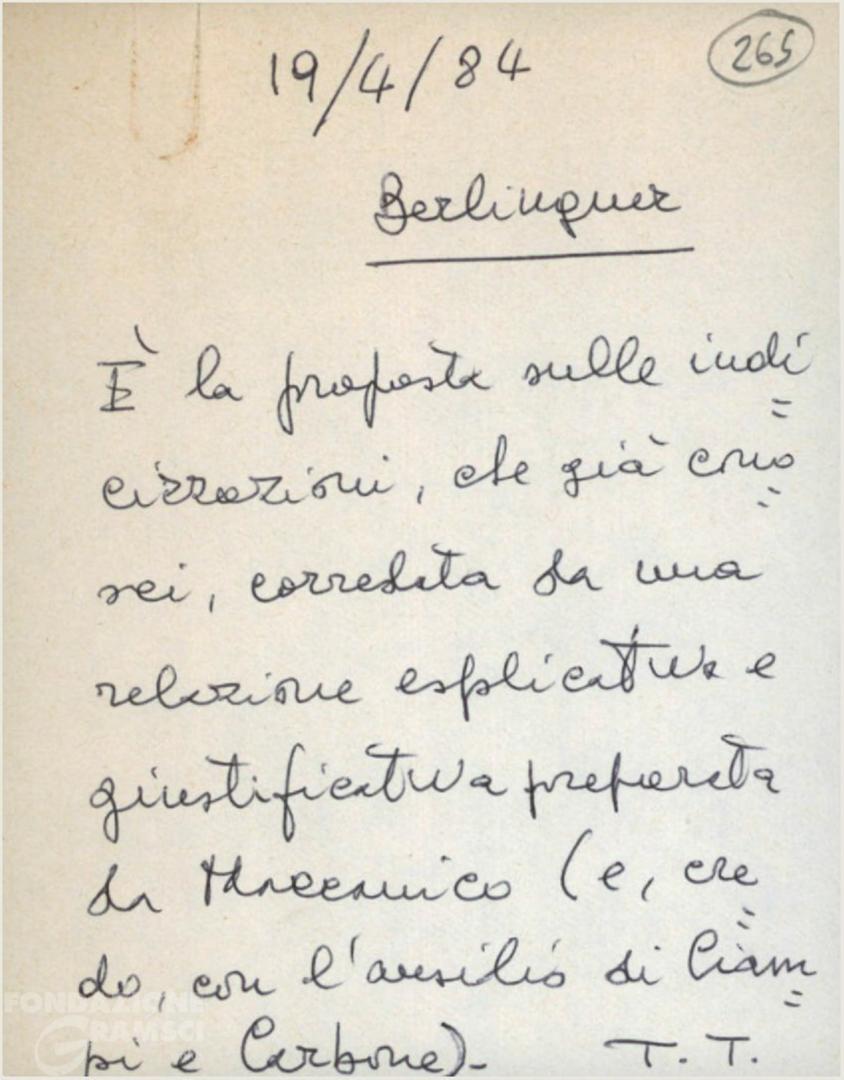 265
19/4/84
Berlinguer
È la proposta sulle indi=
cizzazioni, che già cono=
sci, corredata da una
relazione esplicativa e
giustificativa preparata
da Maccanico (e, cre=
do, con l'ausilio di Ciam=
pi e Carbone)- T. T.
FONDAZIONE
GRAMSCI